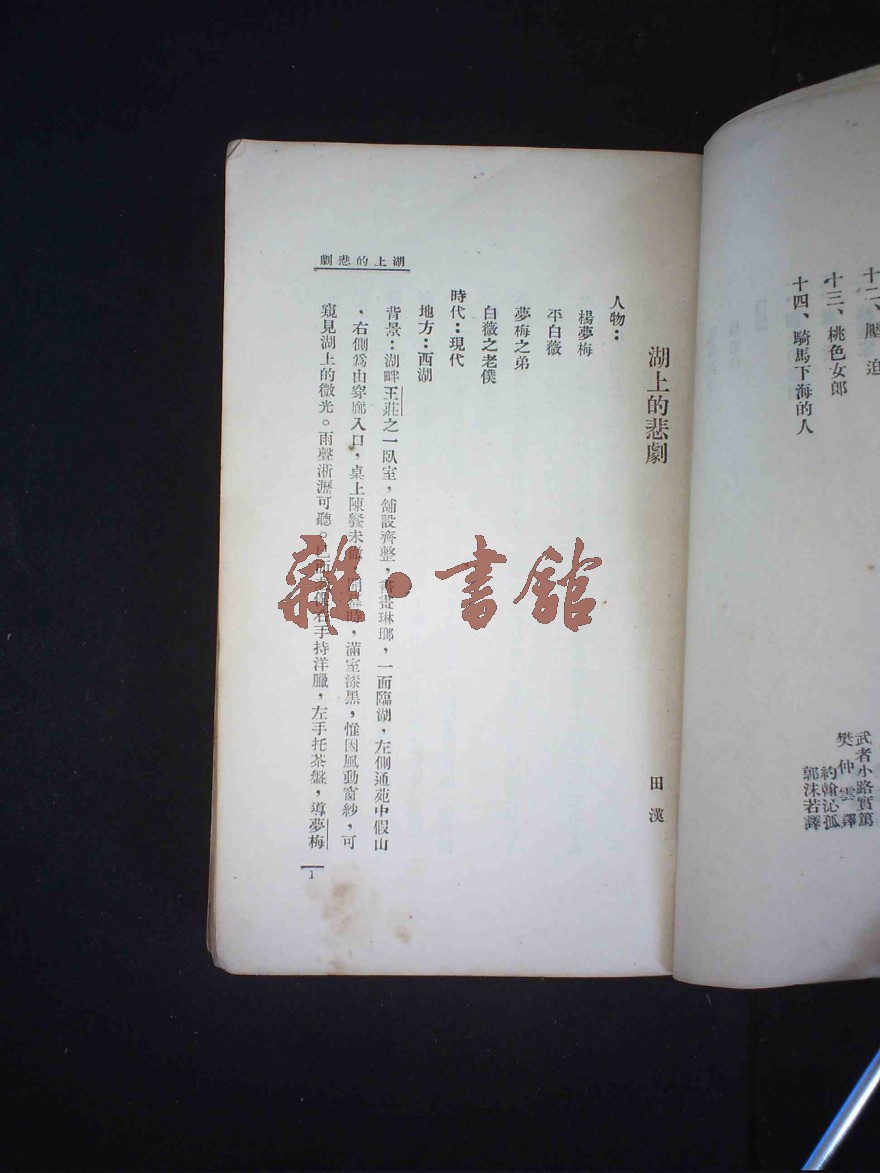 十二、壓迫
十三、桃色女郎
十四、騎馬下海的人
武者小路實篤
樊仲雲譯
約翰沁孤
郭沫若譯
湖上的悲劇
田漢
人物：
楊夢梅
平白薇
夢梅之弟
白薇之老僕
時代：現代
地方：西湖
背景：湖畔王莊之一臥室，舖設齊整，書畫琳瑯，一面臨湖，左側通苑中假山
，右側爲由穿廊入口，桌上陳餐未撤，開幕時，滿室漆黑，惟因風動窗紗，可
窺見湖上的微光。雨聲淅瀝可聽。右手持洋臘，左手托茶盤，導夢梅
湖上的悲劇
1
雜·書館